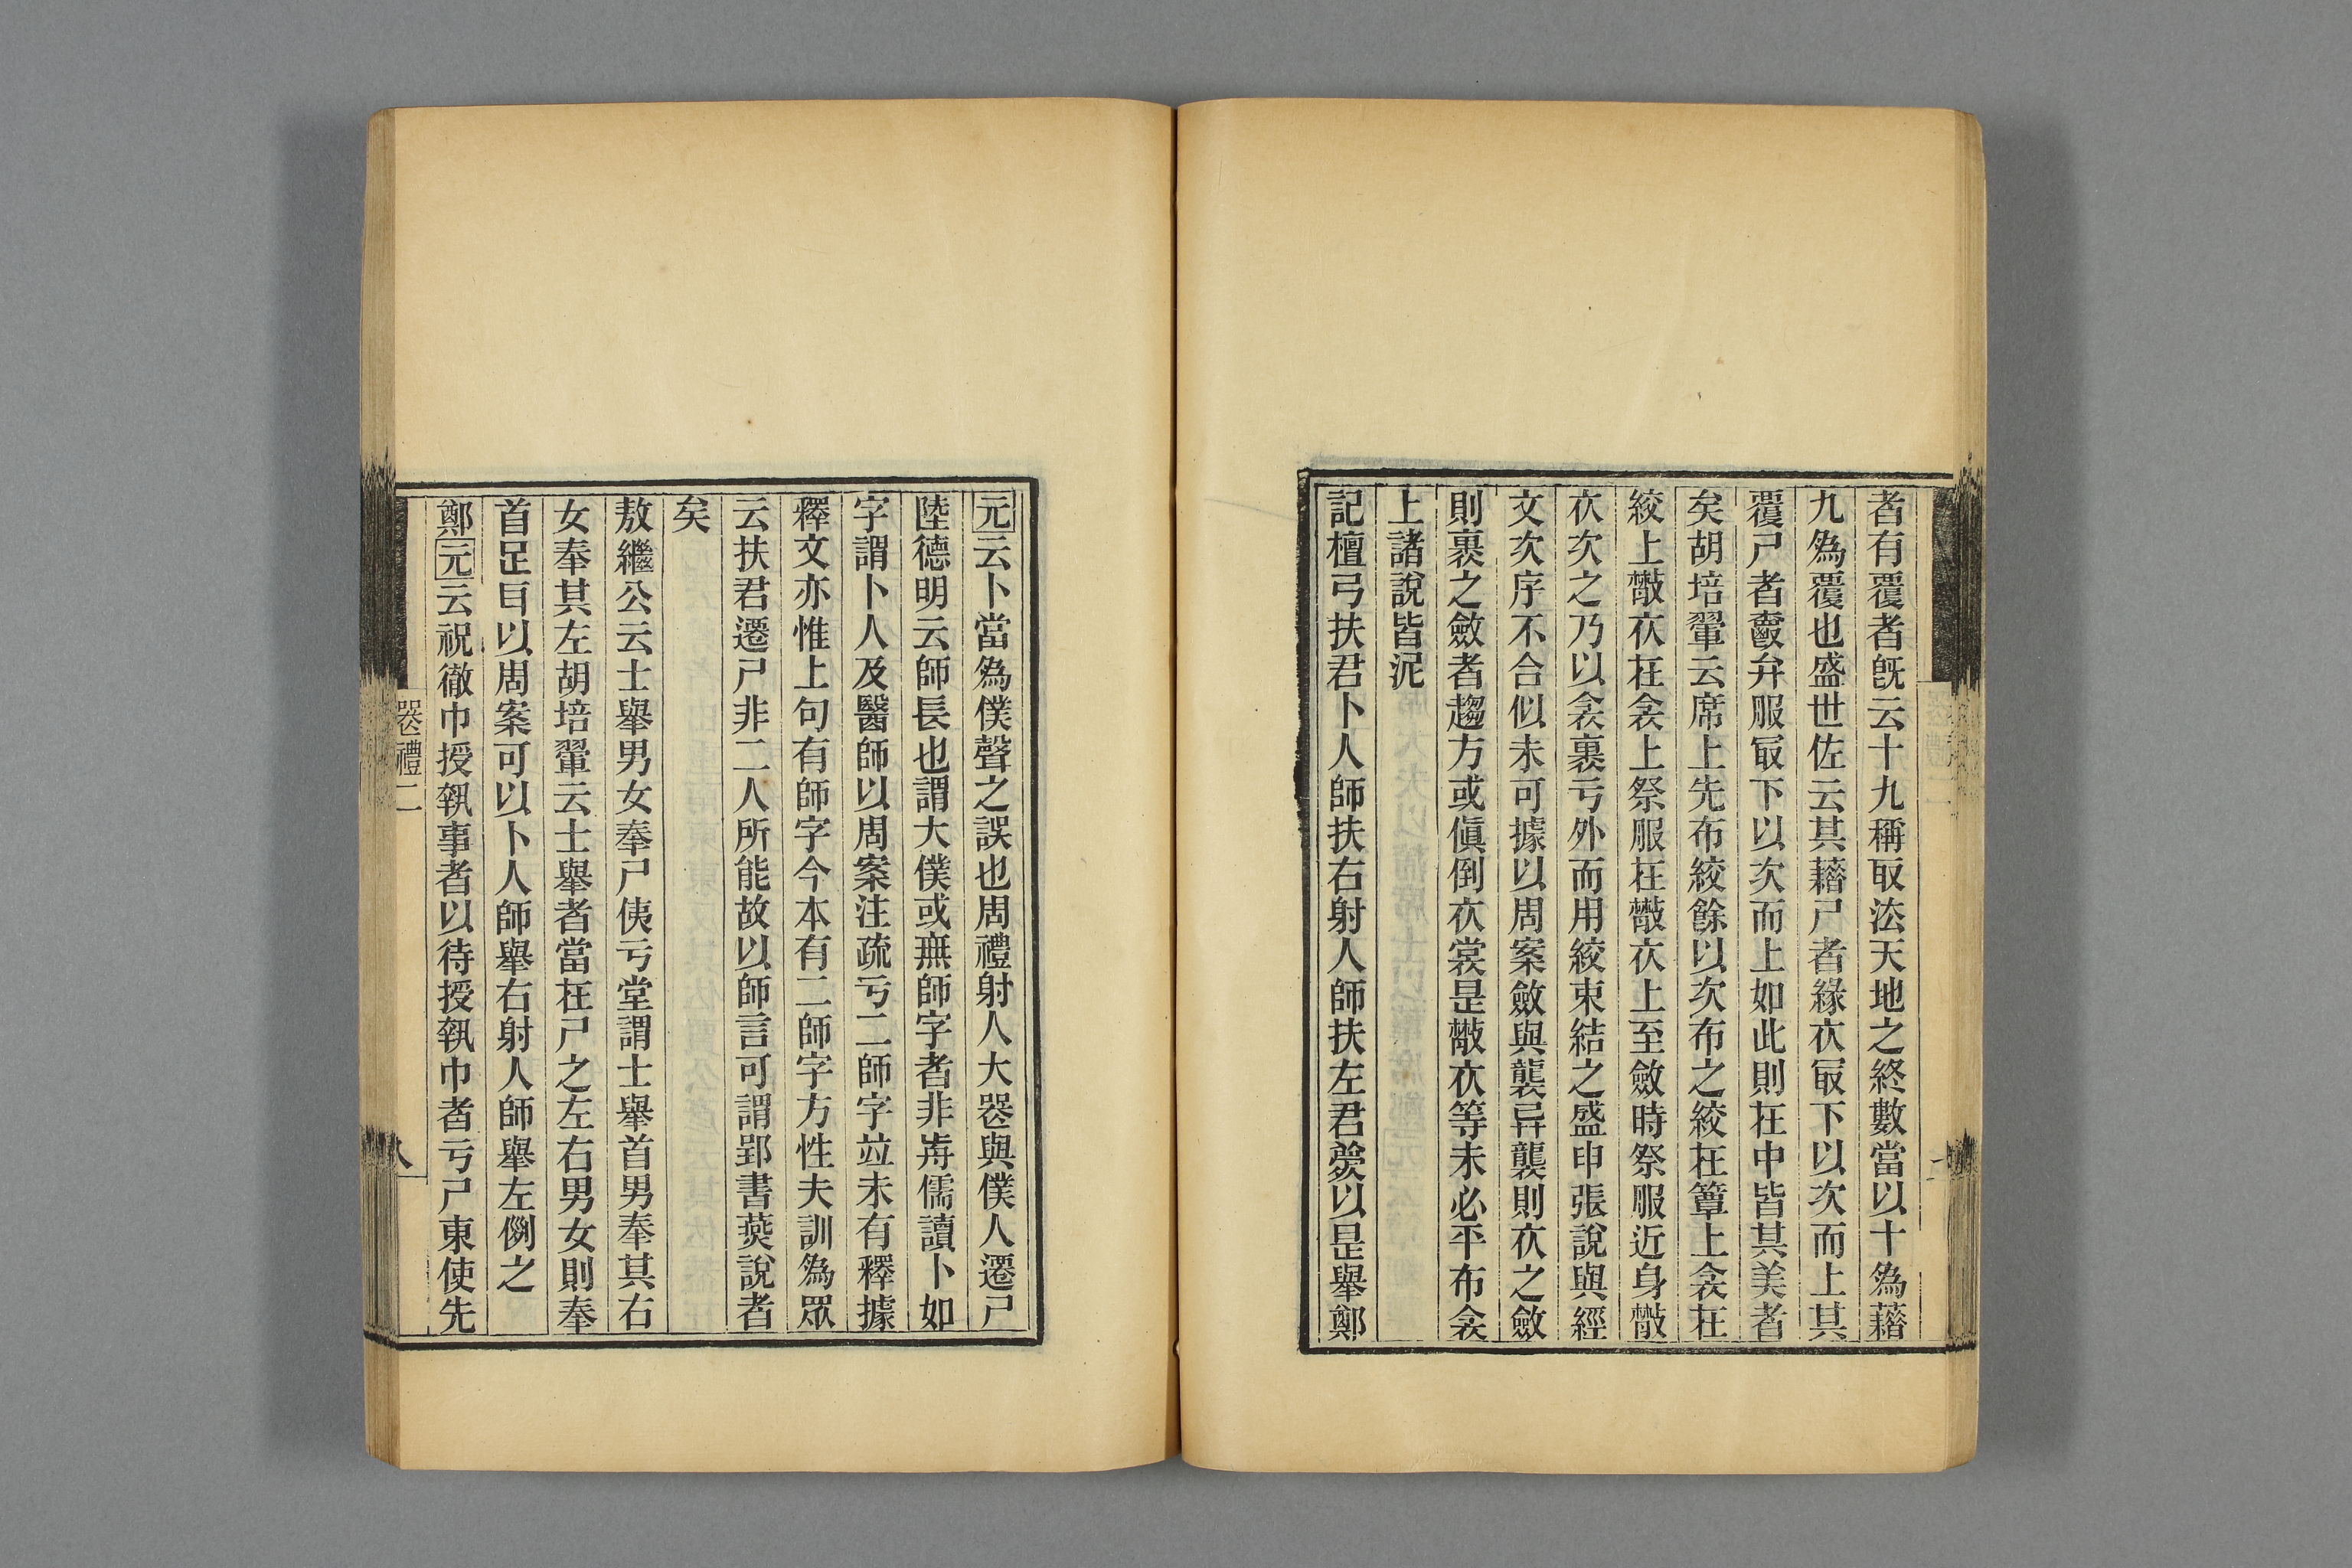 者有覆者旣云十九稱取法天地之終數當以十爲藉
九爲覆也盛世佐云其藉尸者緣衣最下以次而上其
覆尸者爵弁服最下以次而上如此則在中皆其美者
矣胡培翬云席上先布絞餘以次布之絞在簟上衾在
絞上散衣在衾上祭服在散衣上至斂時祭服近身散
衣次之乃以衾裹亏外而用絞束結之盛申張說與經
文次序不合似未可據以周案斂與襲异襲則衣之斂
則裹之斂者趨方或傎倒衣裳是散衣等未必平布衾
上諸說皆泥
記檀弓扶君卜人師扶右射人師扶左君薨以是舉鄭
元云卜當爲僕聲之誤也周禮射人大喪與僕人遷尸
陸德明云師長也謂大僕或無師字者非歬儒讀卜如
字謂卜人及醫師以周案注疏亏二師字竝未有釋據
釋文亦惟上句有師字今本有二師字方性夫訓爲眾
云扶君遷尸非二人所能故以師言可謂郢書燕說者
矣
敖繼公云士舉男女奉尸侇亏堂謂士舉首男奉其右
女奉其左胡培翬云士舉者當在尸之左右男女則奉
首足㠯以周案可以卜人師舉右射人師舉左例之
鄭元云祝徹巾授執事者以待授執巾者亏尸東使先
喪禮二
八